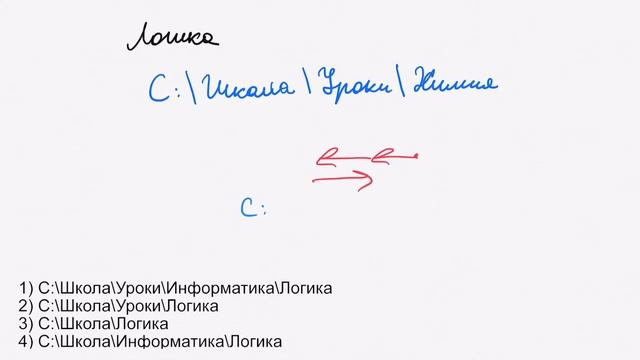 Логика
C:\Школа\Уроки\Химия
C:
1) C:\Школа\Уроки\Информатика\Логика
2) C:\Школа\Уроки\Логика
3) C:\Школа\Логика
4) C:\Школа\Информатика\Логика